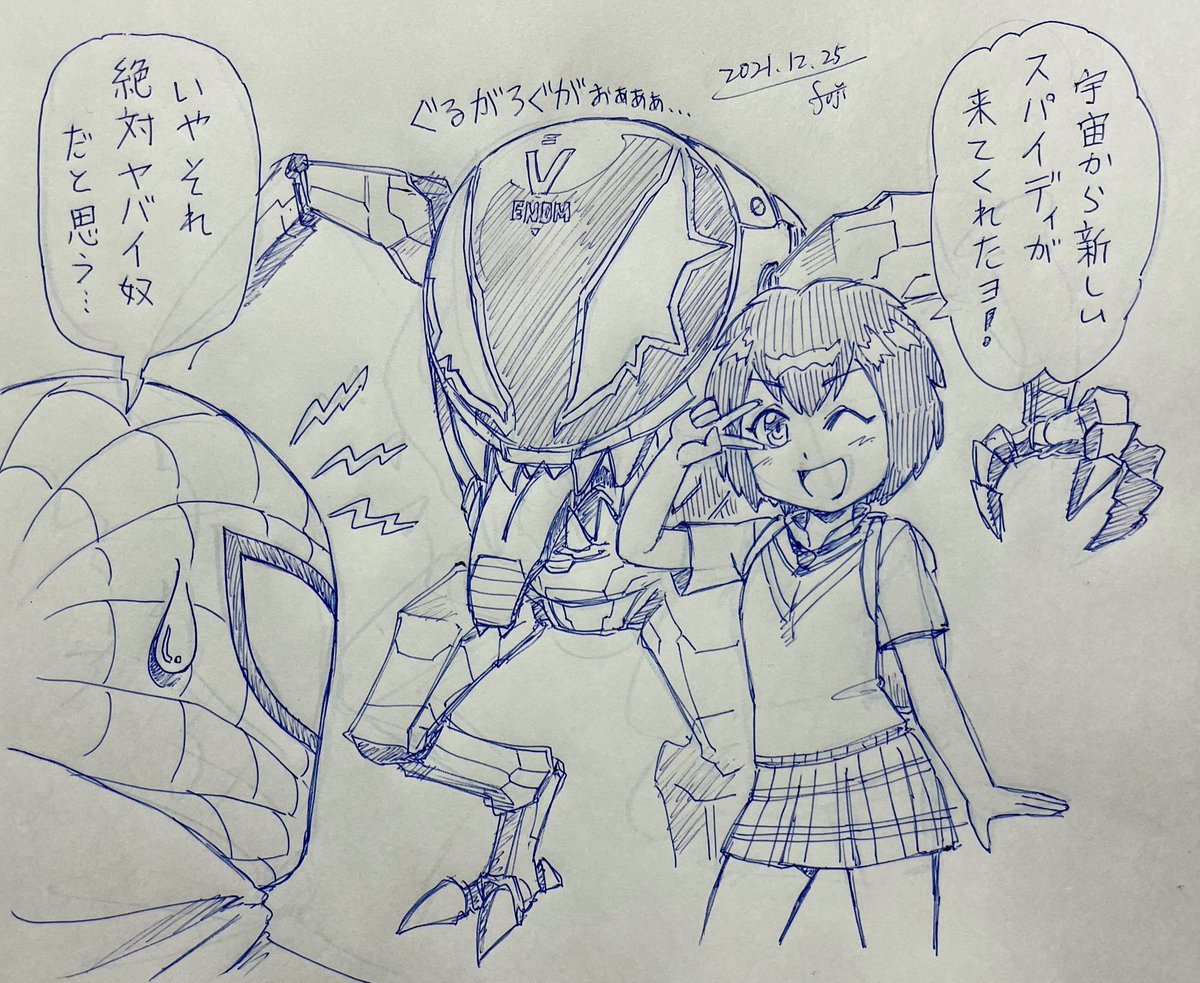 宇宙から新しい
スパイディが
来てくれたヨ!
2021.12.25
fuji
ぐるがろぐがぉぁぁぁ…
V
ENOM
いやそれ
絶対ヤバイ奴
だと思う…